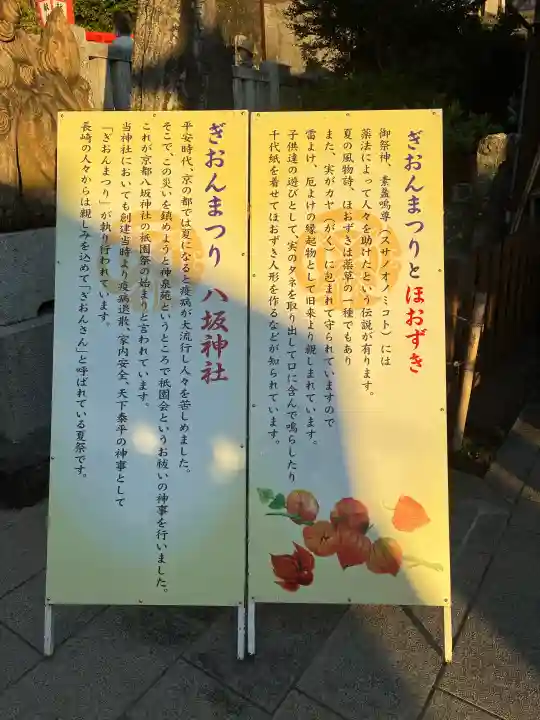 ぎおんまつりとほおずき
御祭神、素盞嗚尊(スサノオノミコト)には
薬法によって人々を助けたという伝説が有ります。
夏の風物詩、ほおずきは薬草の一種でもあり
また、実がカヤ(がく)に包まれて守られていますので
雷よけ、厄よけの縁起物として旧来より親しまれています。
子供達の遊びとして、実のタネを取り出して口に含んで鳴らしたり
千代紙を着せてほおずき人形を作るなどが知られています。
ぎおんまつり 八坂神社
平安時代、京の都では夏になると疫病が大流行し人々を苦しめました。
そこで、この災いを鎮めようと神泉苑というところで祇園会というお祓いの神事を行いました。
これが京都八坂神社の祇園祭の始まりと言われています。
当神社においても創建当時より疫病退散、家内安全、天下泰平の神事として
「ぎおんまつり」が執り行われています。
長崎の人々からは親しみを込めて「ぎおんさん」と呼ばれている夏祭です。